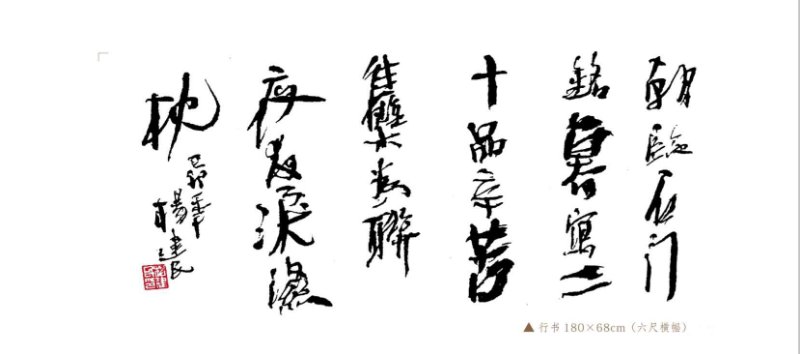 朝臨石门
銘暮寫二
十品辛苦
雧為聯
夜夜淚濕
枕
楊建民
▲ 行书 180×68cm（六尺横幅）